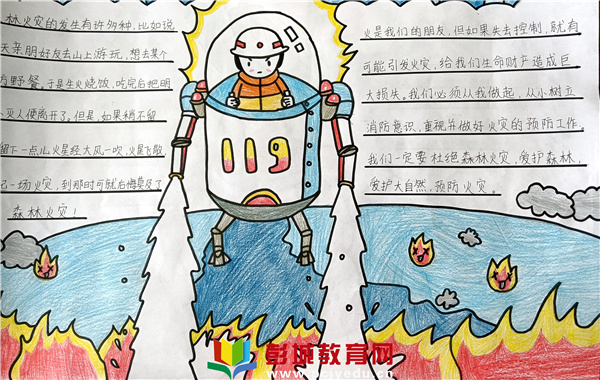 林火灾的发生有许多种，比如说
天亲朋好友去山上游玩，想去某个
方野餐。于是生火烧饭，吃完后把明
灭人便离开了。但是，如果稍不留
留下一点火星经大风一吹，火星飞散，
起一场火灾，到那时可就后悔莫及了
森林火灾！
119
火是我们的朋友，但如果失去控制，就有
可能引发火灾，给我们生命财产造成巨
大损失。我们必须从我做起，从小树立
消防意识，重视并做好火灾的预防工作。
我们一定要杜绝森林火灾，爱护森林，
爱护大自然，预防火灾。
彭城教育网
www.pcjyedu.cn